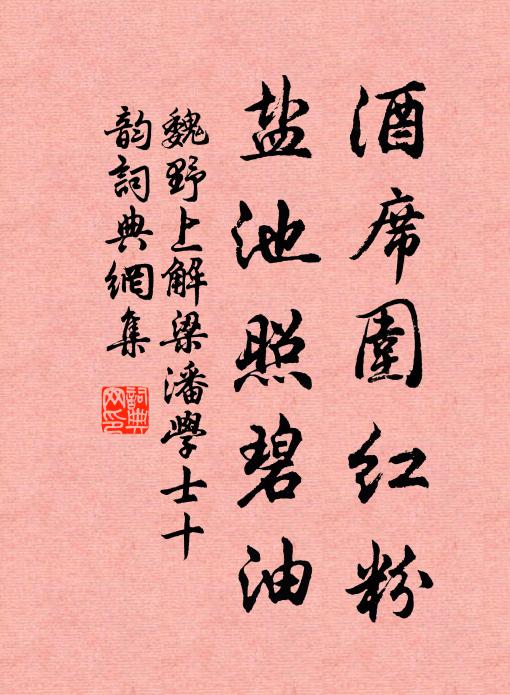 酒席圍红粉
盐池照碧油
魏野上解梁潘學士十
韵詞典網集
詞典网印